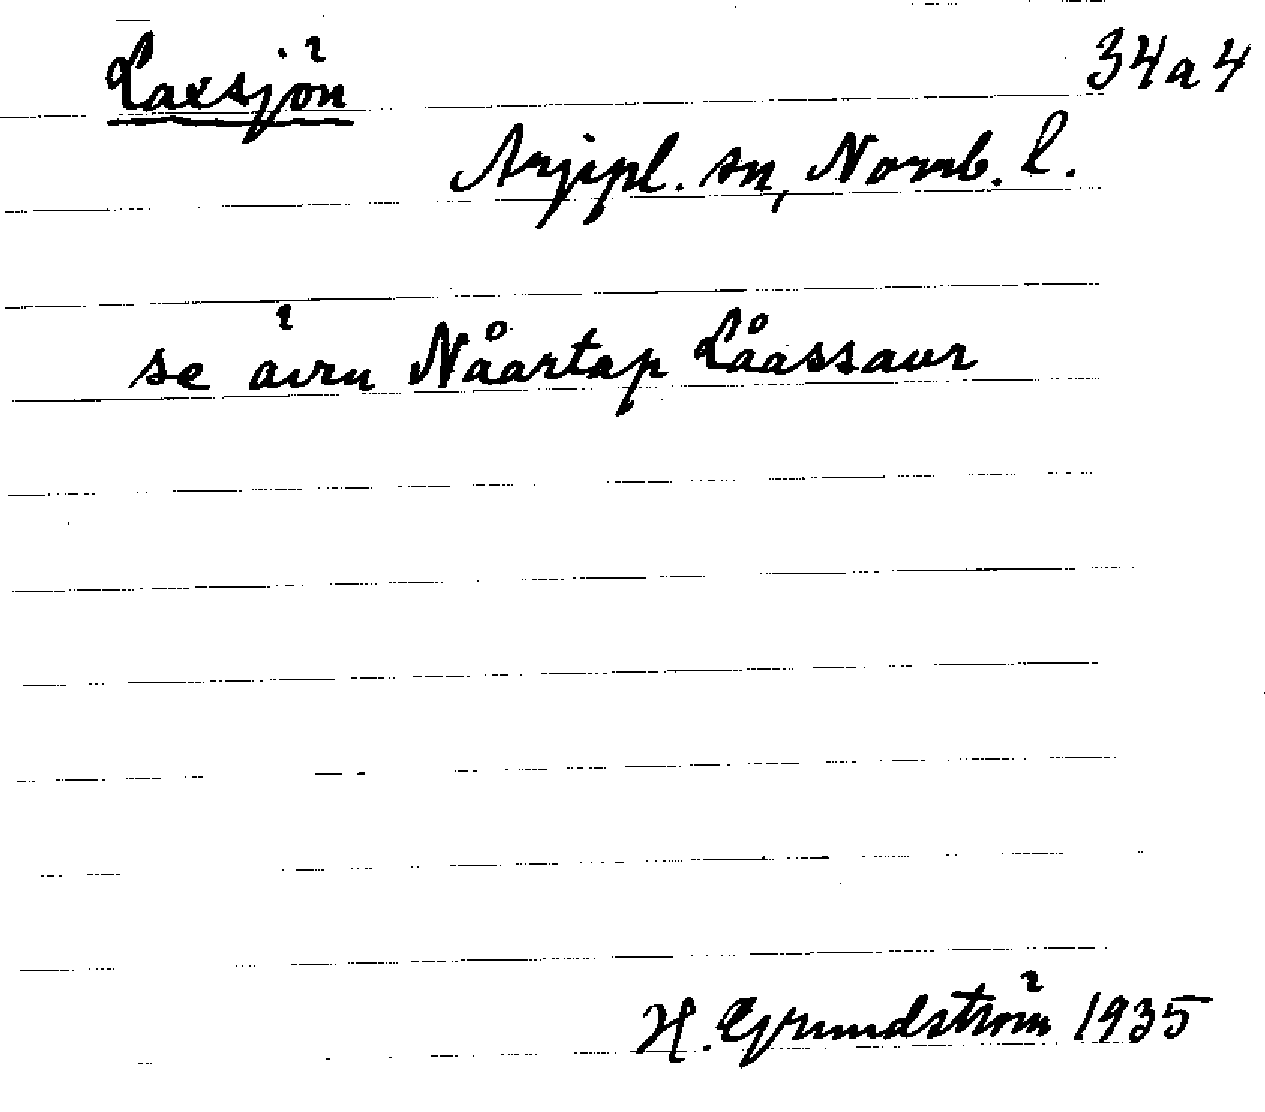 Laxsjön 34a4
Arjepl. sn, Norrb. l.
se även Nåartap Låassaur
H. Grundström 1935